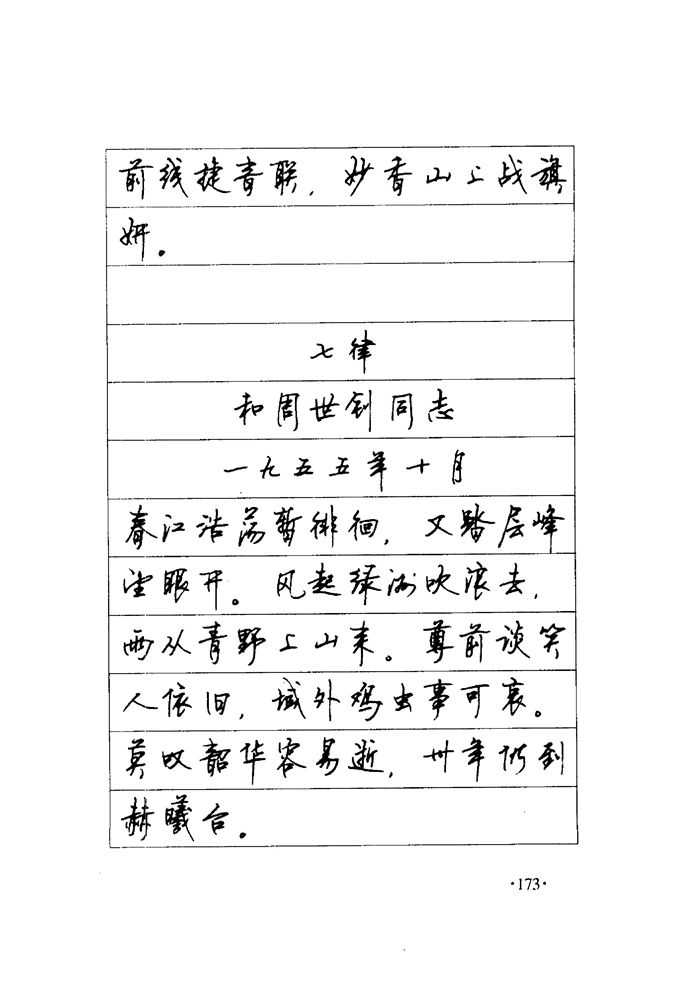 前线捷音联，妙香山上战旗
妍。
七律
和周世钊同志
一九五五年十月
春江浩荡暂徘徊，又踏层峰
望眼开。风起绿洲吹浪去，
雨从青野上山来。尊前谈笑
人依旧，域外鸡虫事可哀。
莫叹韶华容易逝，卅年仍到
赫曦台。
·173·